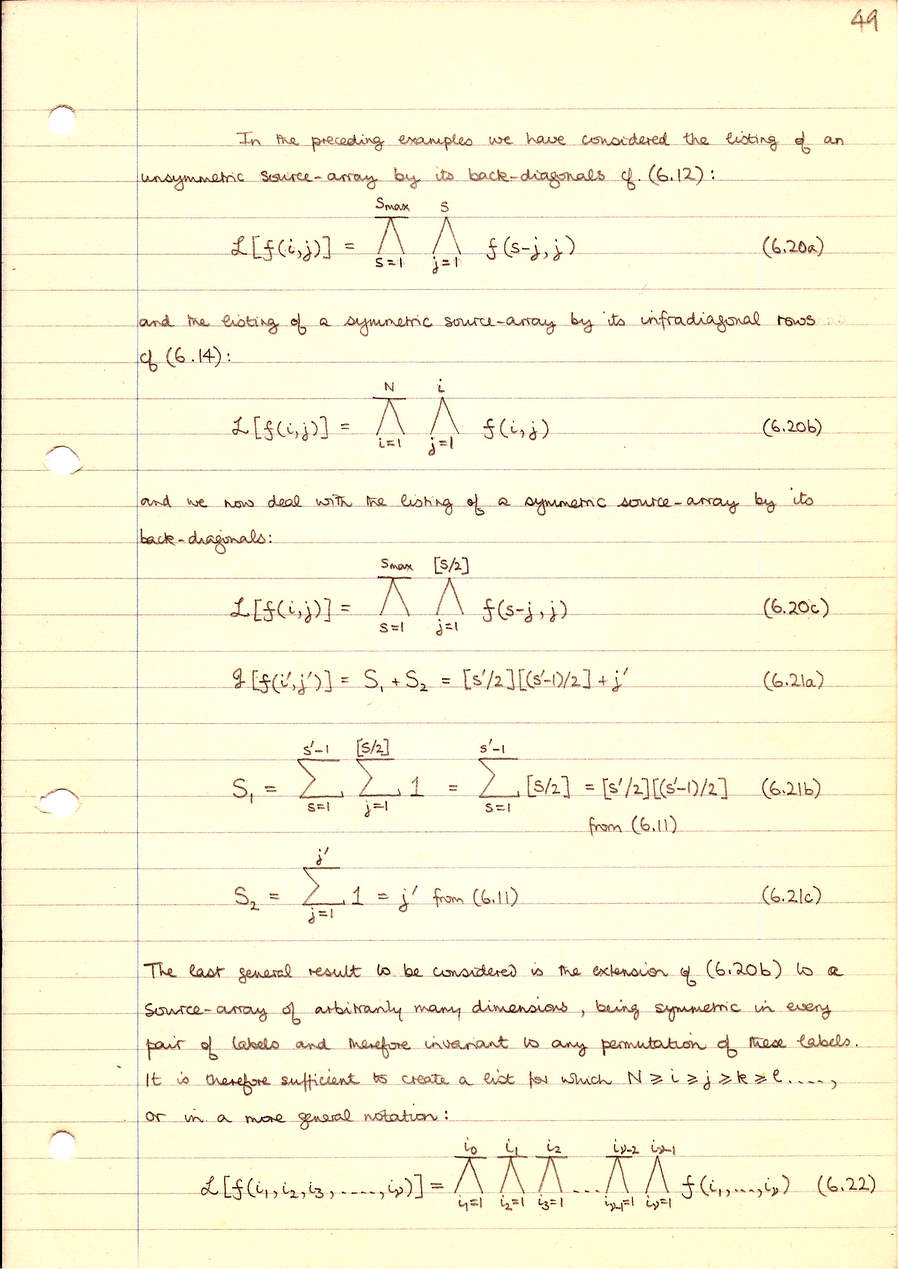 49
In the preceding examples we have considered the listing of an
unsymmetric source-array by its back-diagonals cf. (6.12):
ℒ[f(i,j)] = Λ_{s=1}^{Smax} Λ_{j=1}^{s} f(s-j, j) (6.20a)
and the listing of a symmetric source-array by its infradiagonal rows
cf (6.14):
ℒ[f(i,j)] = Λ_{i=1}^{N} Λ_{j=1}^{i} f(i,j) (6.20b)
and we now deal with the listing of a symmetric source-array by its
back-diagonals:
ℒ[f(i,j)] = Λ_{s=1}^{Smax} Λ_{j=1}^{[s/2]} f(s-j, j) (6.20c)
g[f(i′,j′)] = S₁ + S₂ = [s′/2][(s′-1)/2] + j′ (6.21a)
S₁ = Σ_{s=1}^{s′-1} Σ_{j=1}^{[s/2]} 1 = Σ_{s=1}^{s′-1} [s/2] = [s′/2][(s′-1)/2] (6.21b)
from (6.11)
S₂ = Σ_{j=1}^{j′} 1 = j′ from (6.11) (6.21c)
The last general result to be considered is the extension of (6.20b) to a
source-array of arbitrarily many dimensions, being symmetric in every
pair of labels and therefore invariant to any permutation of these labels.
It is therefore sufficient to create a list for which N ⩾ i ⩾ j ⩾ k ⩾ l ....,
or in a more general notation:
ℒ[f(i₁, i₂, i₃, ....., iν)] = Λ_{i₁=1}^{i₀} Λ_{i₂=1}^{i₁} Λ_{i₃=1}^{i₂} .... Λ_{iν-1=1}^{iν-2} Λ_{iν=1}^{iν-1} f(i₁, ..., iν) (6.22)